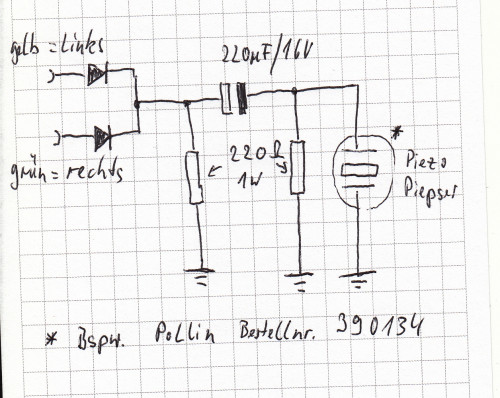 gelb = Links
220µF/16V
grün = rechts
220Ω
1W
*
Piezo
Piepser
* Bspw. Pollin Bestellnr. 390134